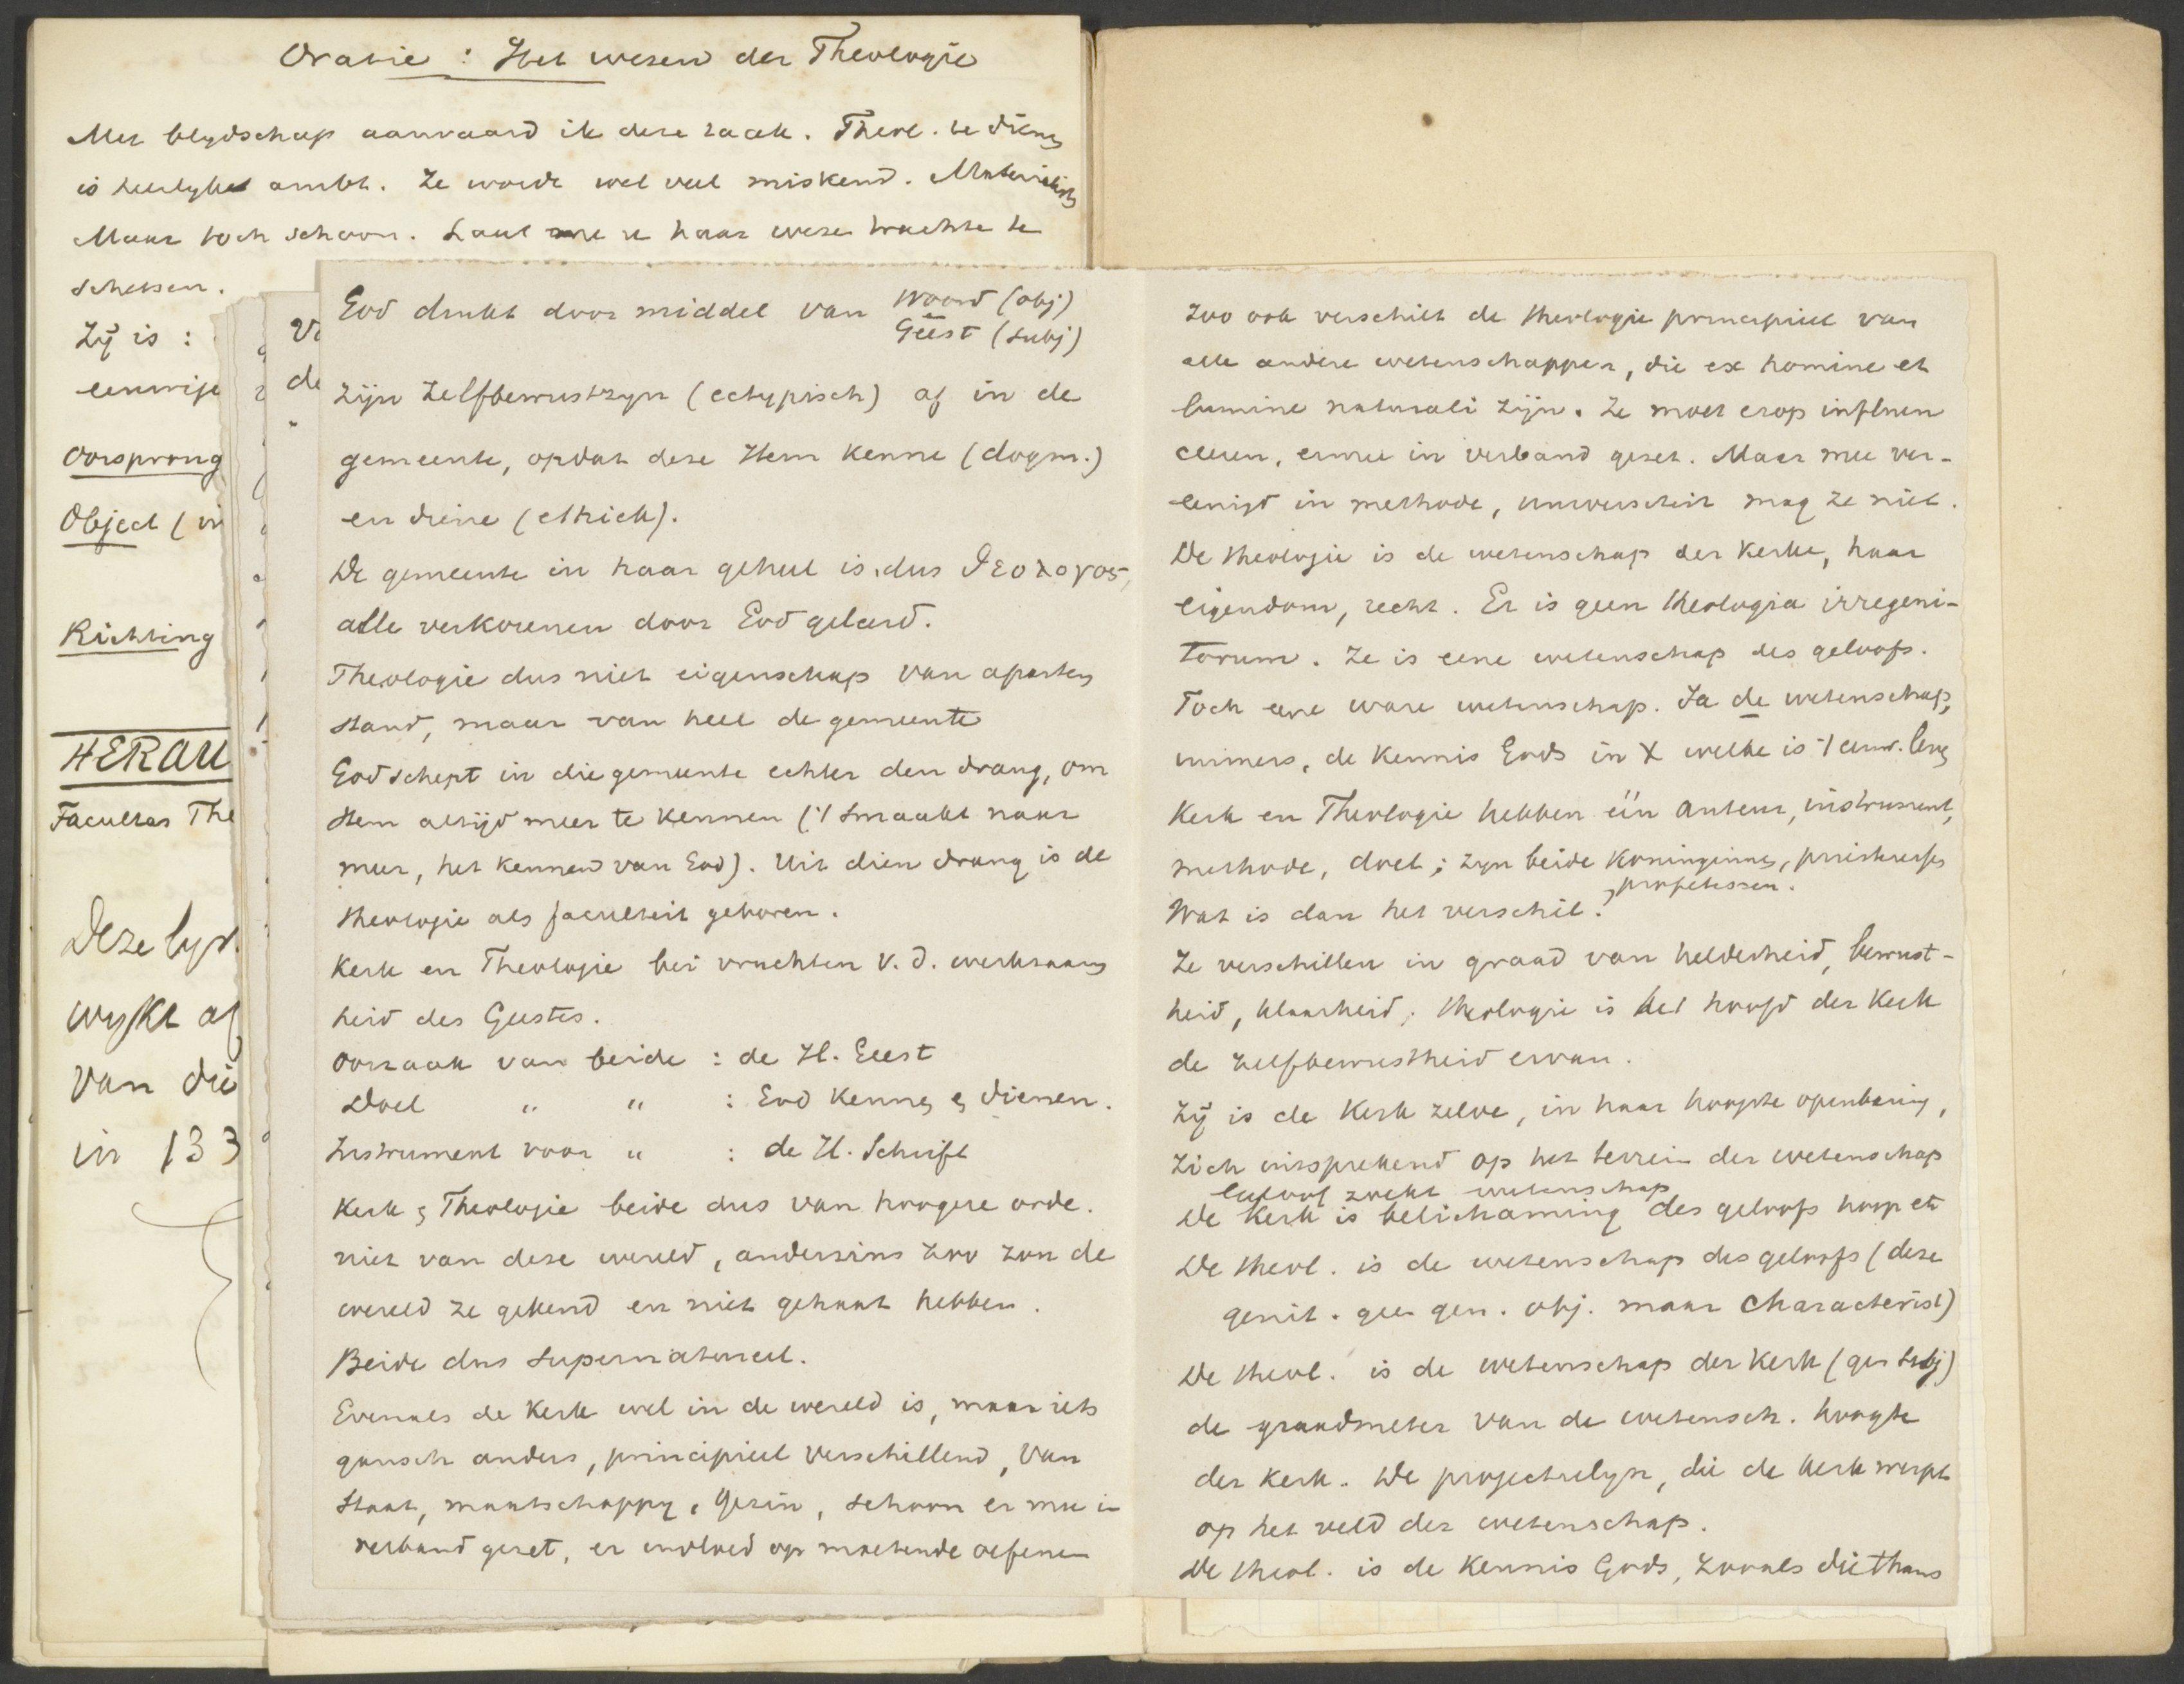 Oratie : Het wezen der Theologie
Met blydschap aanvaard ik deze taak. Theol. te dienen
is heerlyk ambt. Ze wordt wel veel miskend. Materialisten
Maar toch schoon. Laat me u haar wezen trachten te
schetsen.
Zij is :
eenwije
Oorsprong
Object (in
Richting
HERAU
Facultas The
Deze lyst
wykt af
van die
in 133
Va
de
God drukt door middel van Woord (obj)
Geest (subj)
zijn zelfbewustzyn (ectypisch) af in de
gemeente, opdat deze Hem kenne (dogm.)
en diene (ethick).
De gemeente in haar geheel is dus θεολογος,
alle verkorenen door God geleerd.
Theologie dus niet eigenschap van aparten
stand, maar van heel de gemeente
God schept in die gemeente echter den drang, om
Hem altijd meer te kennen ('t smaakt naar
meer, het kennen van God). Uit dien drang is de
theologie als faculteit geboren.
Kerk en Theologie bei vruchten v. d. werkzaam
heid des Geestes.
Oorzaak van beide : de H. Geest
Doel " " : God kennen en dienen.
Instrument voor " : de H. Schrift
Kerk en Theologie beide dus van hoogere orde.
niet van deze wereld, anderszins zoo zou de
wereld ze gekend en niet gehaat hebben.
Beide dus supernatureel.
Evenals de Kerk wel in de wereld is, maar iets
gansch anders, principieel verschillend, van
Staat, maatschappy, Gezin, schoon er mee in
verband gezet, er invloed op moetende oefenen
Zoo ook verschilt de theologie principieel van
alle andere wetenschappen, die ex homine et
lumine naturali zijn. Ze moet erop influen
ceeren, ermee in verband gezet. Maar mee ver-
eenigd in methode, universiteit mag ze niet.
De theologie is de wetenschap der Kerk, haar
eigendom, recht. Er is geen theologia irregeni-
torum. Ze is eene wetenschap des geloofs.
Toch eene ware wetenschap. Ja de wetenschap,
immers, de kennis Gods in X welke is 't eeuw. leven
Kerk en Theologie hebben één auteur, instrument,
methode, doel ; zyn beide koninginnen, priesteressen
profetessen.
Wat is dan het verschil?
Ze verschillen in graad van helderheid, bewust-
heid, klaarheid; theologie is het hoofd der Kerk
de zelfbewustheid ervan.
Zij is de Kerk zelve, in haar hoogste openbaring,
zich uitsprekend op het terrein der wetenschap
geloof zoekt wetenschap
De Kerk is belichaming des geloofs hoop etc
De theol. is de wetenschap des geloofs (deze
genit. geen gen. obj. maar characterist)
De theol. is de wetenschap der Kerk (gen subj)
de graadmeter van de wetensch. hoogte
der Kerk. De projectielyn, die de Kerk werpt
op het veld der wetenschap.
De theol. is de kennis Gods, zooals die thans